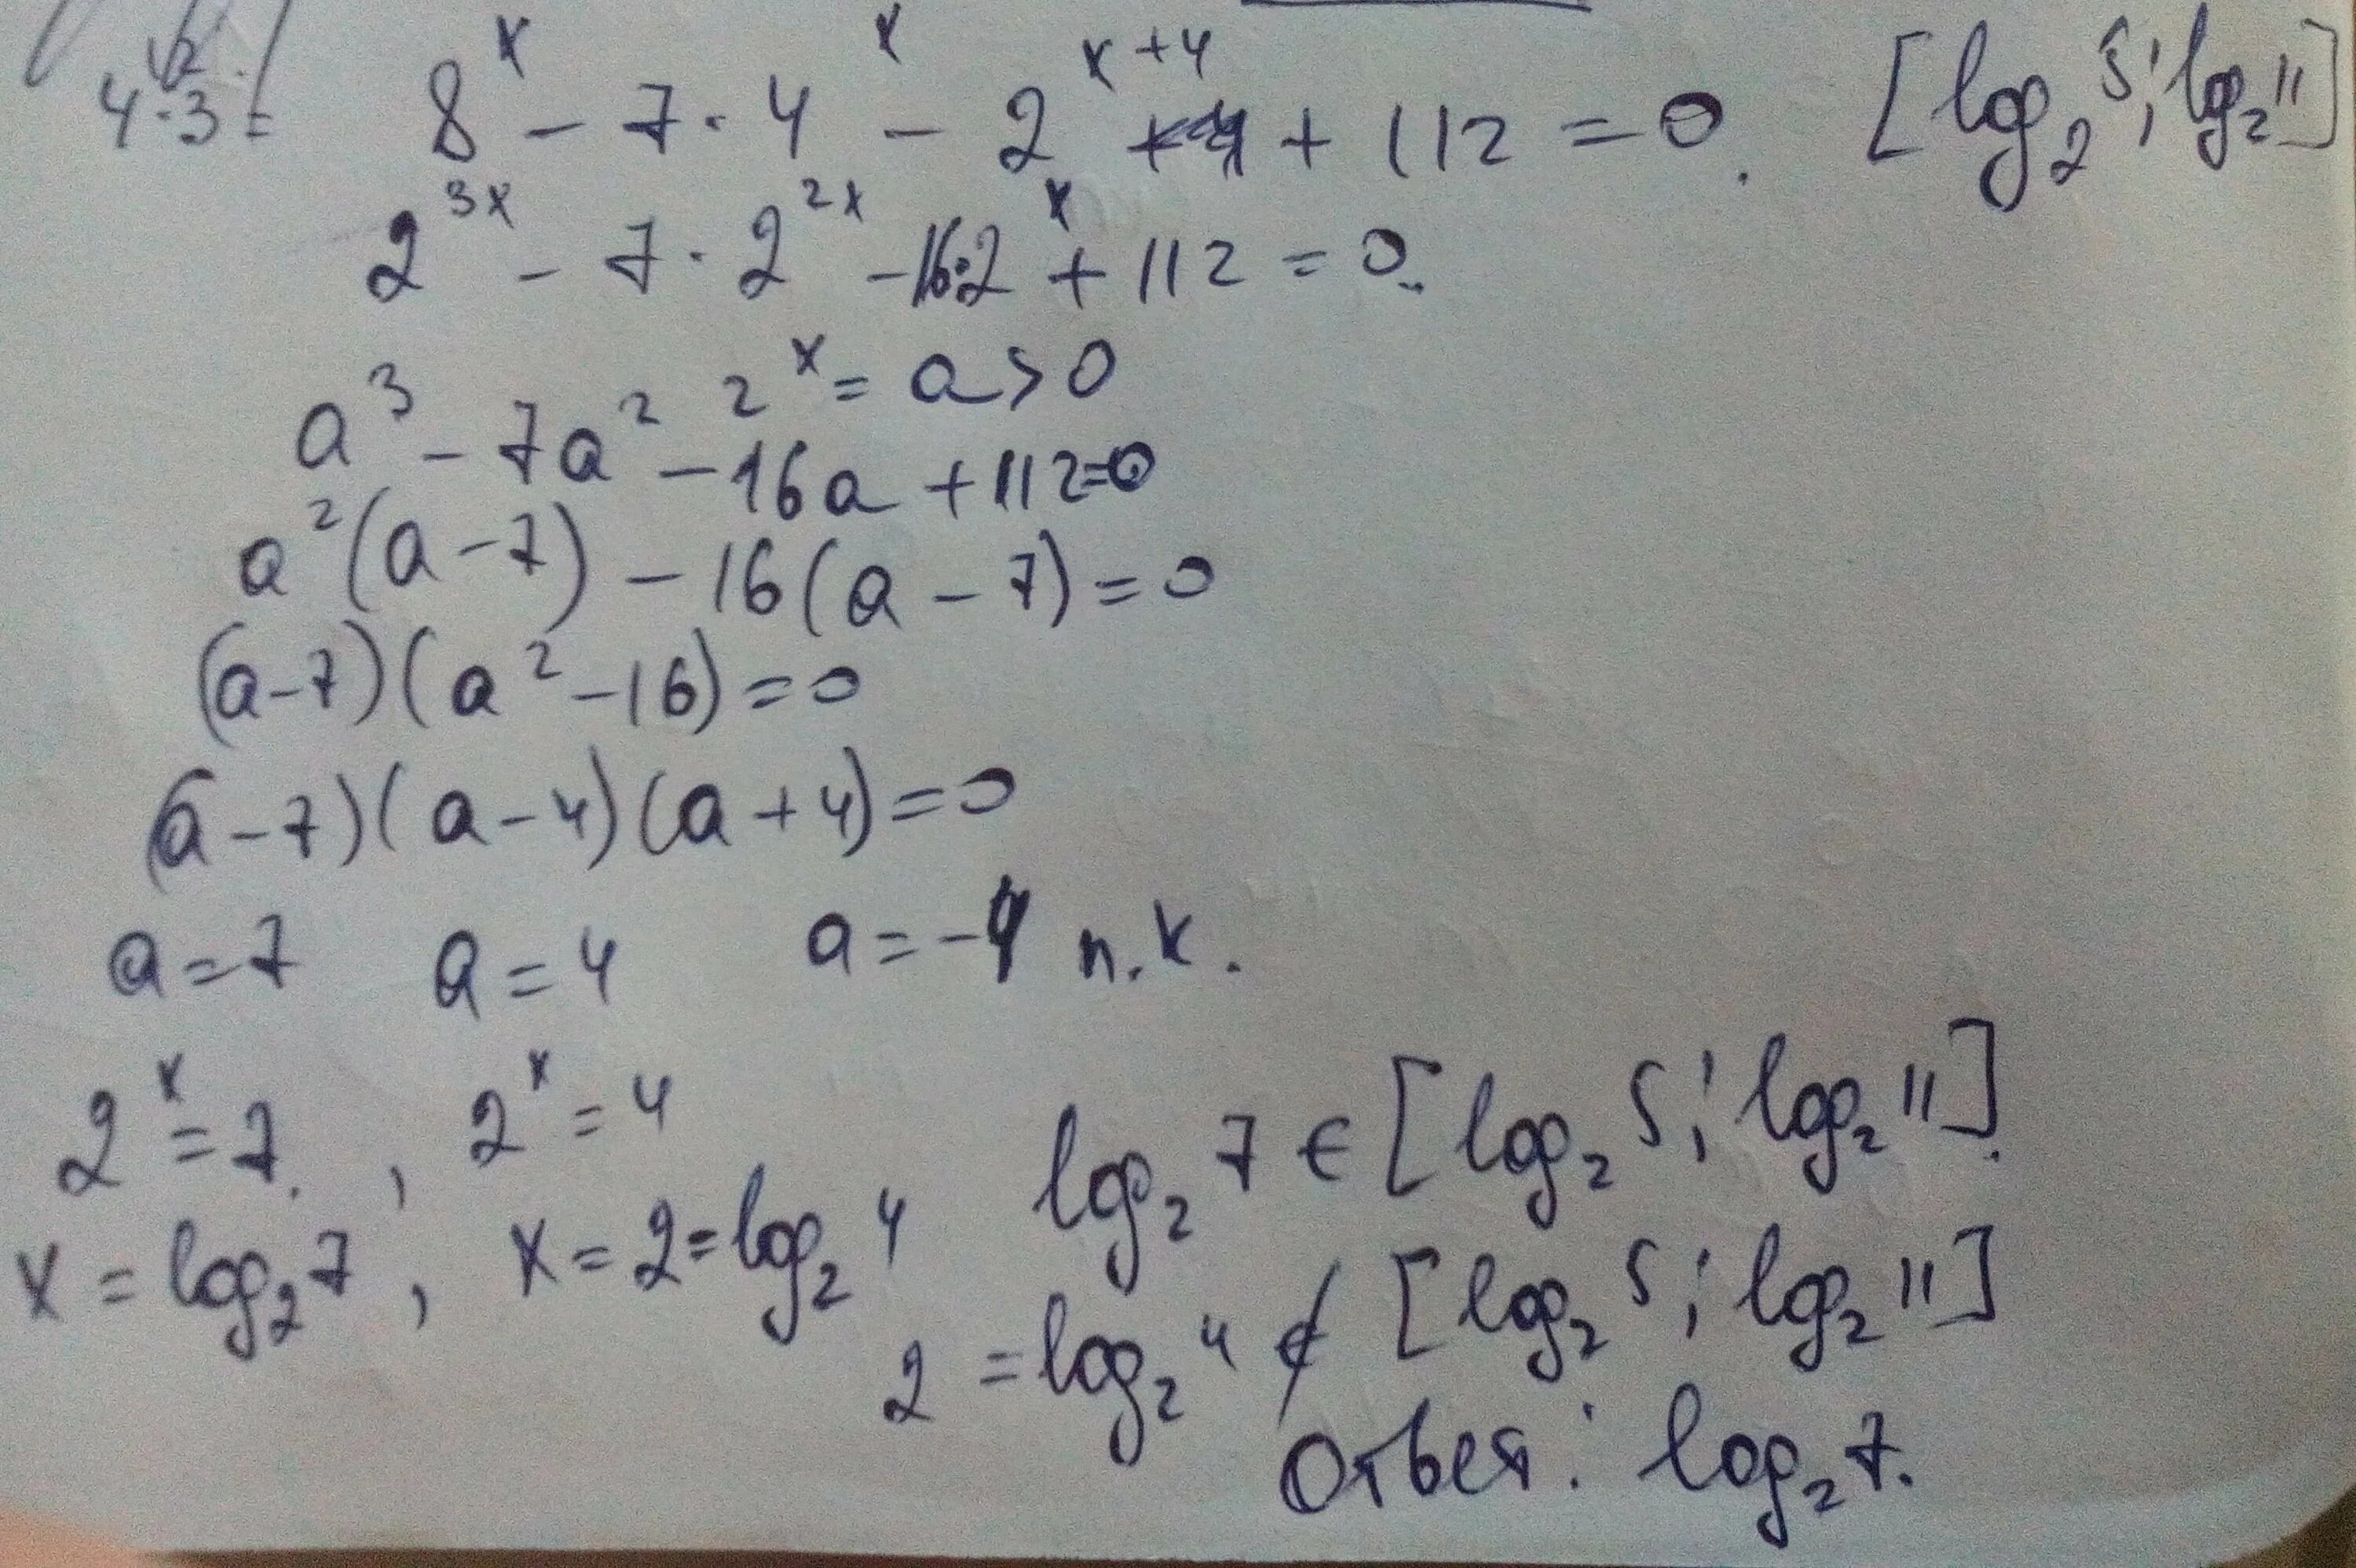 4·3√2 =
8^x − 7·4^x − 2^{x+4} + 112 = 0. [log₂5; log₂11]
2^{3x} − 7·2^{2x} − 16·2^x + 112 = 0.
2^x = a > 0
a³ − 7a² − 16a + 112 = 0
a²(a − 7) − 16(a − 7) = 0
(a − 7)(a² − 16) = 0
(a − 7)(a − 4)(a + 4) = 0
a = 7 a = 4 a = −4 п.к.
2^x = 7. , 2^x = 4
x = log₂7 , x = 2 = log₂4
log₂7 ∈ [log₂5; log₂11].
2 = log₂4 ∉ [log₂5; log₂11]
Ответ: log₂7.